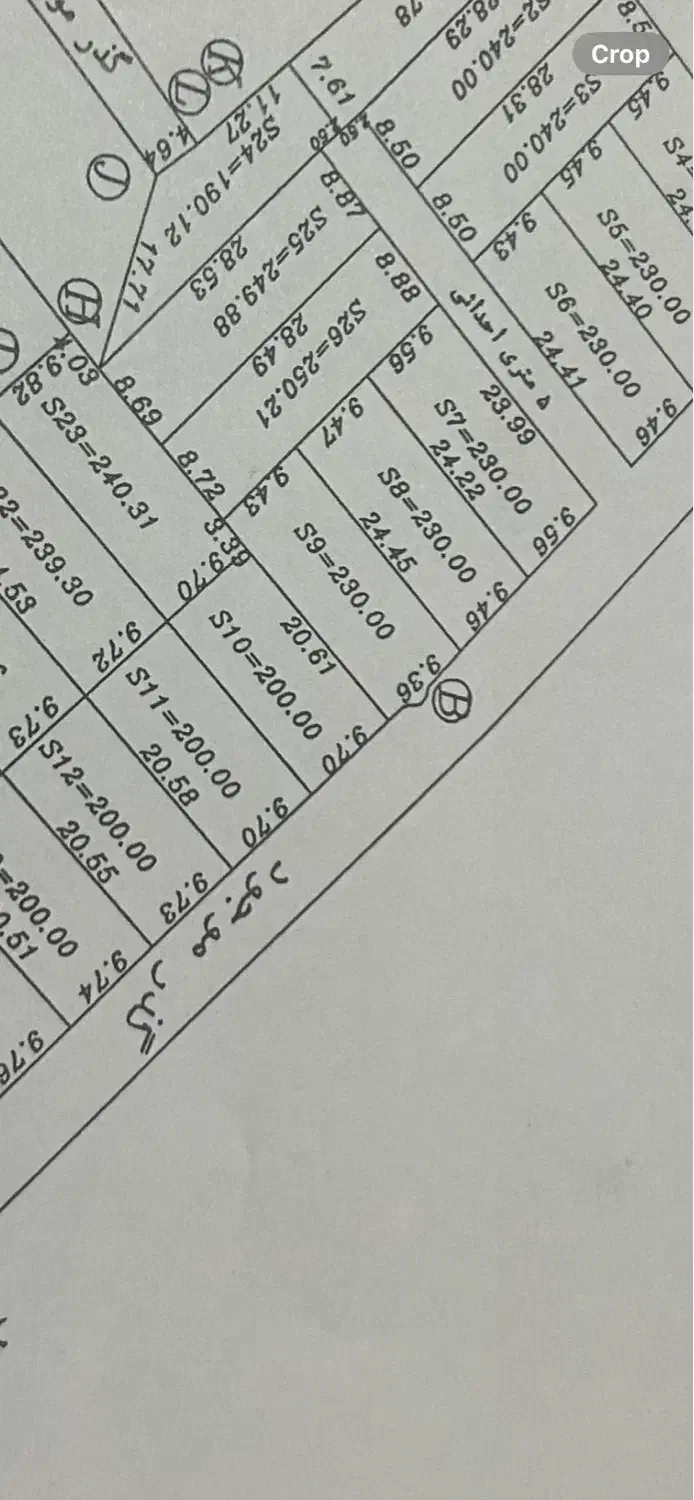 Crop
گذر مو
78
8.29
S2=240.00
28.31
S3=240.00
8.5
9.45
S4=
24.
9.45
S5=230.00
24.40
9.43
S6=230.00
24.41
9.46
7.61
8.50
8.50
2.50
2.50
K
L
11.27
4.64
J
S24=190.12
17.71
28.53
8.87
S25=249.88
28.49
8.88
S26=250.21
۵ متری احداثی
23.99
9.56
S7=230.00
24.22
9.56
9.47
S8=230.00
24.45
9.46
9.43
S9=230.00
20.61
9.36
B
H
4.03
9.82
8.69
8.72
3.39
S23=240.31
9.70
S10=200.00
9.70
22=239.30
.53
9.72
S11=200.00
20.58
9.70
9.73
S12=200.00
20.55
9.73
=200.00
0.51
9.74
9.76
گذر موجود